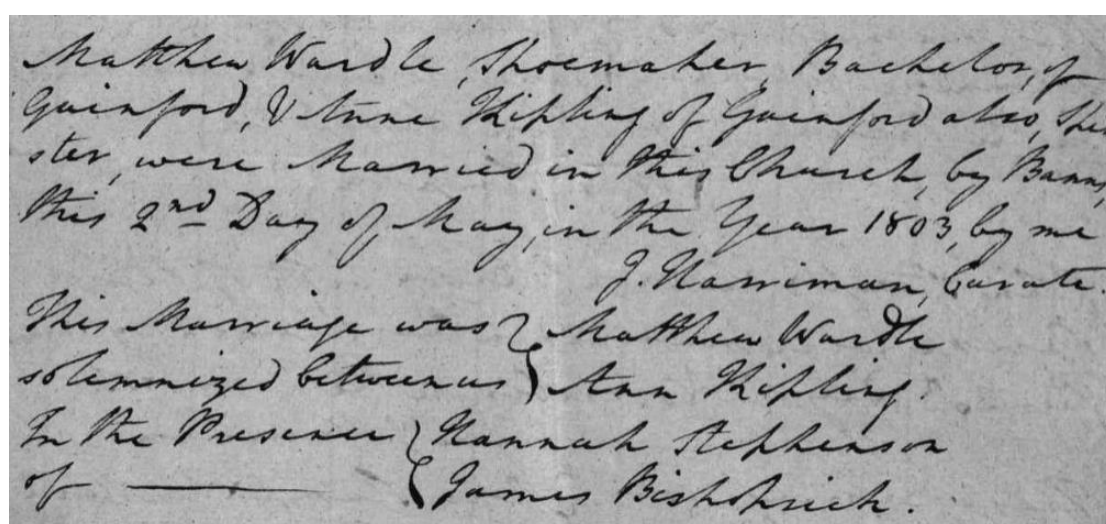 Matthew Wardle, Shoemaker, Bachelor, of
Gainford, & Anne Kipling of Gainford also, Spin
ster, were Married in this Church, by Banns,
this 2nd Day of May, in the Year 1803, by me
J. Harriman, Curate.
This Marriage was } Matthew Wardle
solemnized between us } Ann Kipling.
In the Presence { Hannah Stephenson
of — { James Bishoprick.